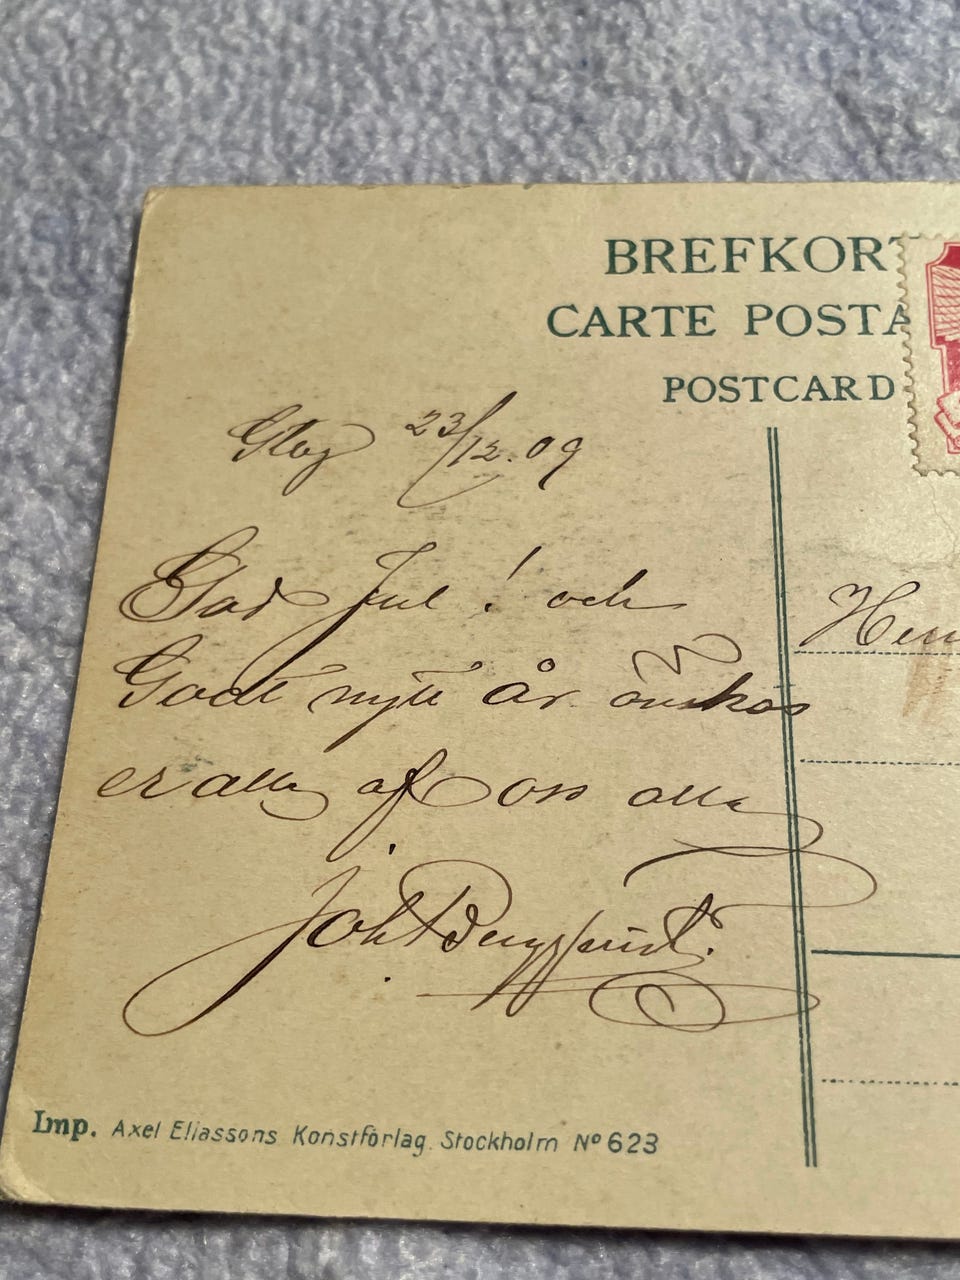 BREFKORT
CARTE POSTA
POSTCARD
Gbg 23/12.09
God Jul! och
Godt nytt år önskas
er alla af oss alla
Joh Bergqvist.
Hen
Imp. Axel Eliassons Konstförlag. Stockholm Nº 623